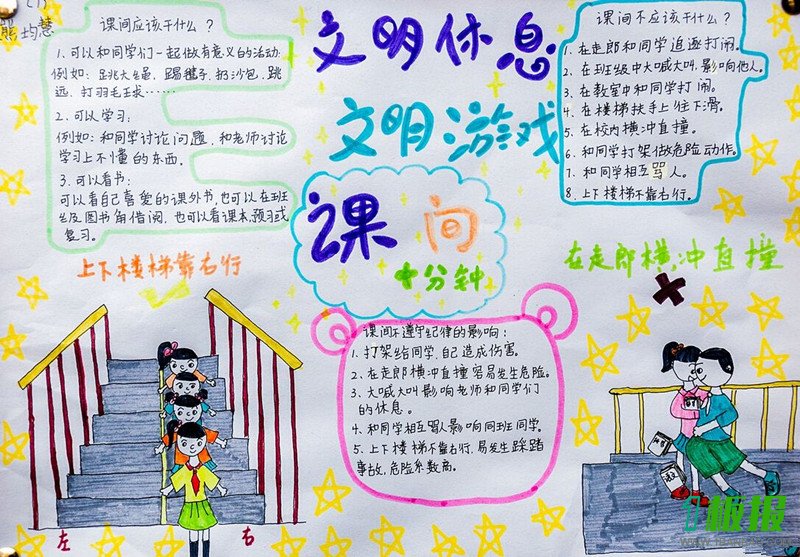 熊均慧
课间应该干什么？
1、可以和同学们一起做有意义的活动.
例如：跳大绳、踢毽子、扔沙包、跳
远、打羽毛球……
2、可以学习：
例如：和同学讨论问题，和老师讨论
学习上不懂的东西。
3、可以看书：
可以看自己喜爱的课外书，也可以在班
级图书角借阅，也可以看课本，预习或
复习。
文明休息
文明游戏
课间
十分钟
课间不应该干什么？
1、在走郎和同学追逐打闹。
2、在班级中大喊大叫，影响他人。
3、在教室中和同学打闹。
4、在楼梯扶手上往下滑。
5、在校内横冲直撞。
6、和同学打架做危险动作。
7、和同学相互骂人。
8、上下楼梯不靠右行。
上下楼梯靠右行
左
右
课间不遵守纪律的影响：
1、打架给同学，自己造成伤害。
2、在走郎横冲直撞容易发生危险。
3、大喊大叫影响老师和同学们
的休息。
4、和同学相互骂人影响同班同学。
5、上下楼梯不靠右行，易发生踩踏
事故，危险系数高。
在走郎横冲直撞
板报